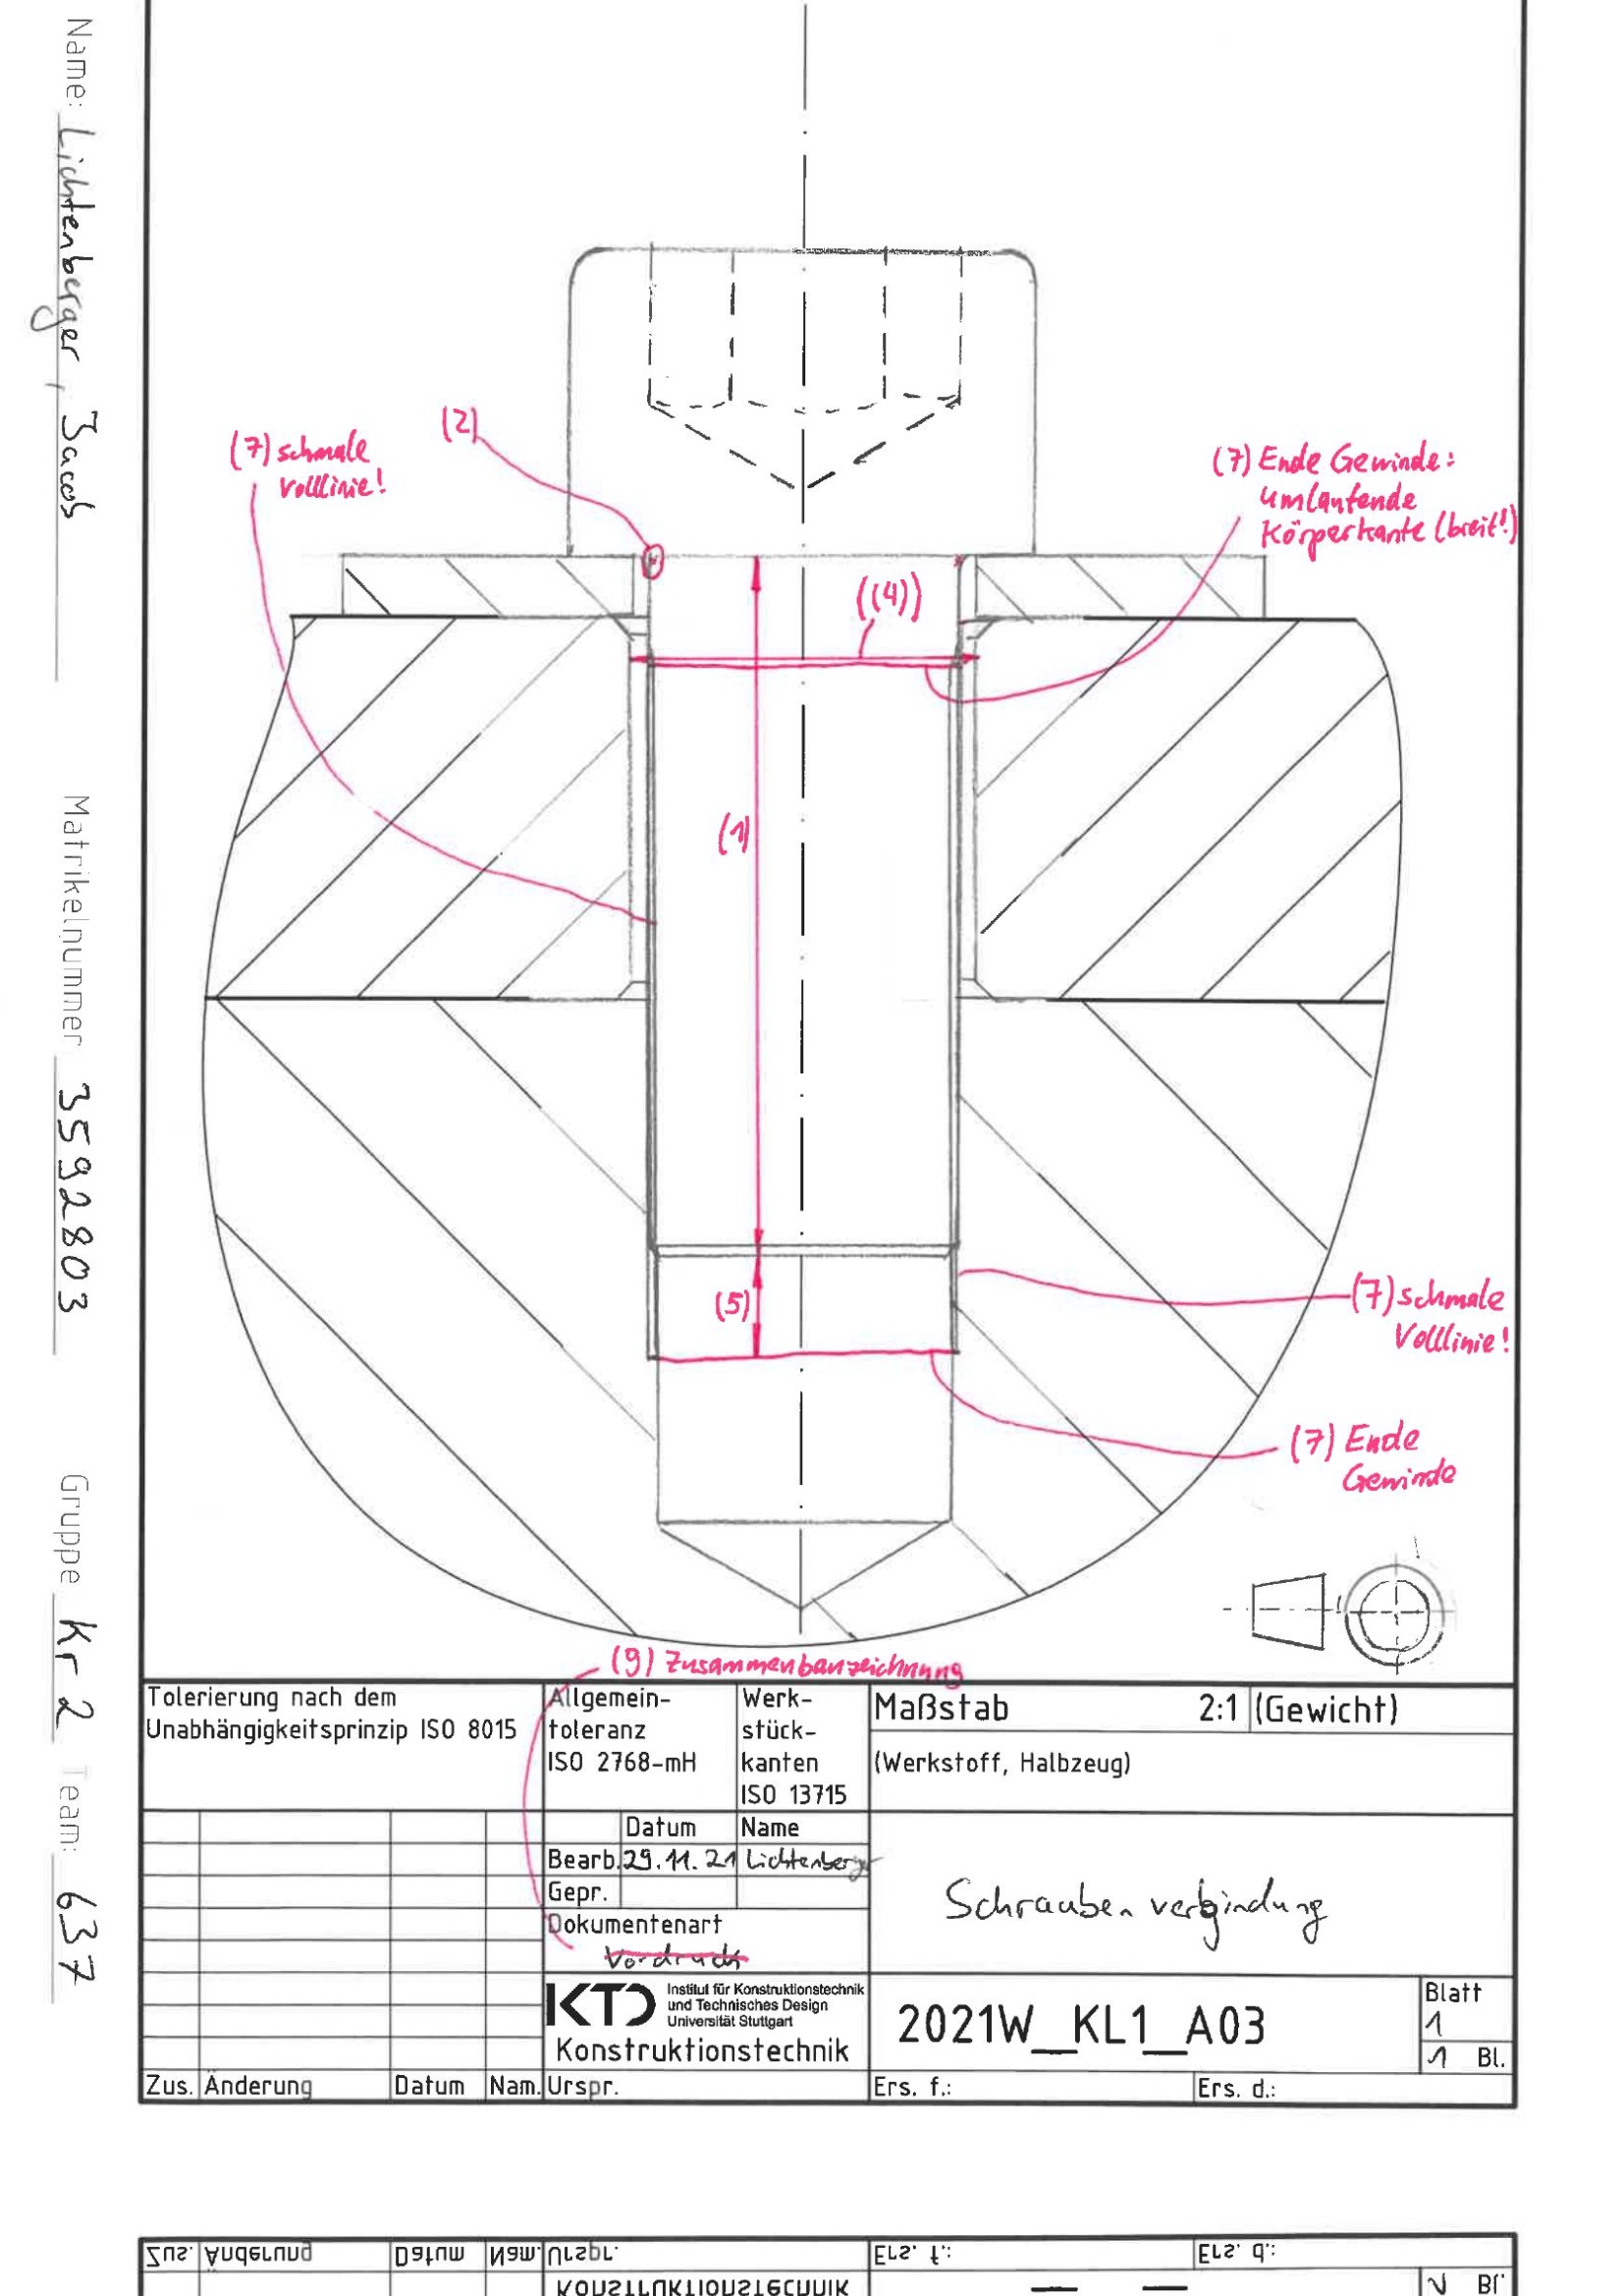 Name: Lichtenberger, Jacob
Matrikelnummer 3592803
Gruppe Kr 2 Team: 637
(7) schmale
Volllinie!
(2)
(7) Ende Gewinde:
umlaufende
Körperkante (breit!)
((4))
(1)
(5)
(7) schmale
Volllinie!
(7) Ende
Gewinde
(9) Zusammenbauzeichnung
Tolerierung nach dem
Unabhängigkeitsprinzip ISO 8015
Allgemein-
toleranz
ISO 2768-mH
Werk-
stück-
kanten
ISO 13715
Maßstab 2:1 (Gewicht)
(Werkstoff, Halbzeug)
Datum Name
Bearb. 29.11.21 Lichtenberger
Gepr.
Dokumentenart
Vordruck
Schraubenverbindung
KTD Institut für Konstruktionstechnik
und Technisches Design
Universität Stuttgart
Konstruktionstechnik
2021W_KL1_A03
Blatt
1
1 Bl.
Zus. Änderung Datum Nam. Urspr. Ers. f.: Ers. d.:
Zus. Änderung Datum Nam. Urspr. Ers. f.: Ers. d.:
Konstruktionstechnik
1 Bl.